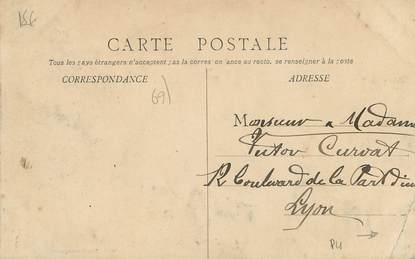 156
CARTE POSTALE
Tous les pays étrangers n'acceptent pas la correspondance au recto, se renseigner à la poste
CORRESPONDANCE
ADRESSE
69)
Monsieur & Madame
Victor Curvat
Boulevard de la Part Dieu
Lyon